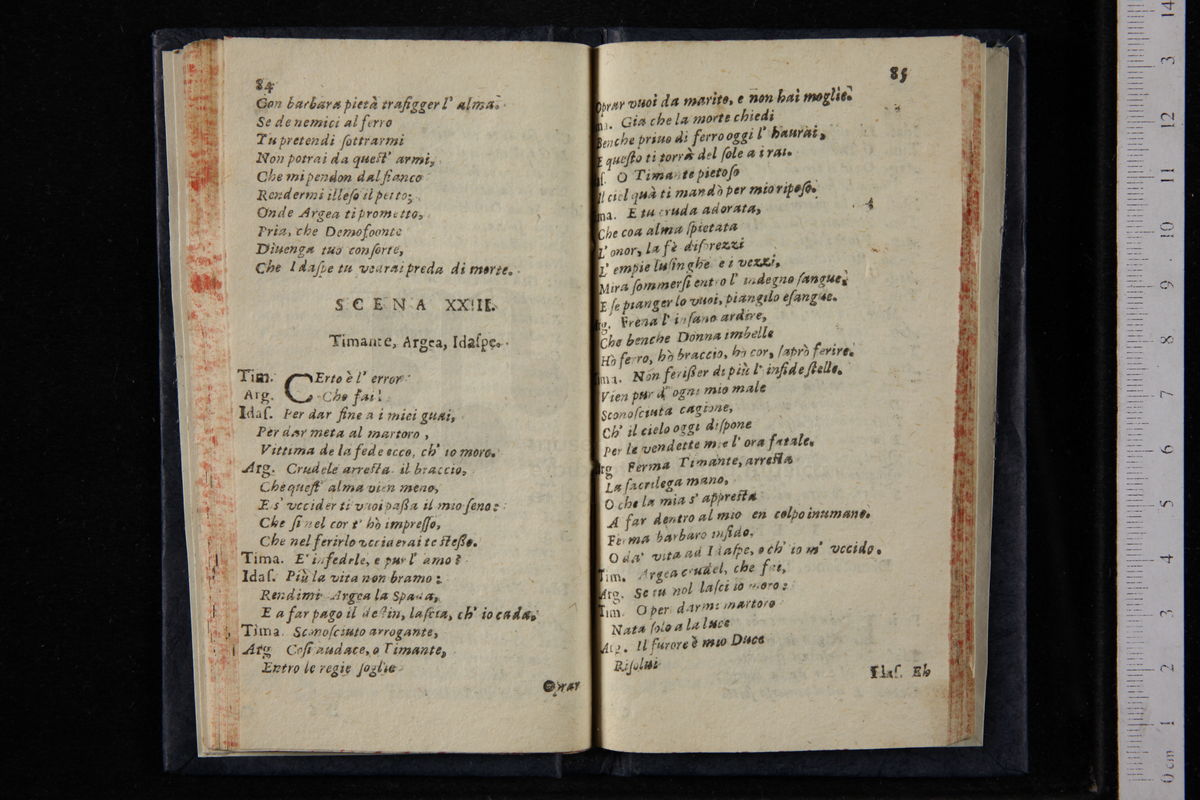 84
Con barbara pietà trafigger l' alma.
Se de nemici al ferro
Tu pretendi ſottrarmi
Non potrai da queſt' armi,
Che mi pendon dal fianco
Rendermi illeſo il petto;
Onde Argea ti prometto,
Pria, che Demofoonte
Diuenga tuo conſorte,
Che Idaſpe tu vedrai preda di morte.
SCENA XXIII.
Timante, Argea, Idaſpe.
Tim. CErto è l' error
Arg. Che fai!
Idaſ. Per dar fine a i miei guai,
Per dar meta al martoro,
Vittima de la fede ecco, ch' io moro.
Arg. Crudele arreſta il braccio,
Che queſt' alma vien meno,
E s' vccider ti vuoi paßa il mio ſeno:
Che ſi nel cor t' hò impreſſo,
Che nel ferirlo vcciderai te ſteßo.
Tima. E' infedele, e pur l' amo?
Idaſ. Più la vita non bramo:
Rendimi Argea la Spada,
E a far pago il deſtin, laſcia, ch' io cada,
Tima. Sconoſciuto arrogante,
Arg Coſi audace, o Timante,
Entro le regie ſoglie
Oprar
85
Oprar vuoi da marito, e non hai moglie.
ma. Gia che la morte chiedi
Benche priuo di ferro oggi l' haurai,
E queſto ti torrà del ſole a i rai.
aſ. O Timante pietoſo
Il ciel quà ti mandò per mio ripoſo.
ma. E tu cruda adorata,
Che coa alma ſpietata
L' onor, la fè diſprezzi
L' empie luſinghe e i vezzi,
Mira ſommerſi entro l' indegno ſangue,
E ſe pianger lo vuoi, piangilo eſangue.
rg. Frena l' inſano ardire,
Che benche Donna imbelle
Hò ferro, hò braccio, hò cor, ſaprò ferire.
ima. Non ferißer di più l' infide ſtelle.
Vien pur d' ogni mio male
Sconoſciuta cagione,
Ch' il cielo oggi diſpone
Per le vendette mie l' ora fatale.
Arg Ferma Timante, arreſta
La ſacrilega mano,
O che la mia s' appreſta
A far dentro al mio en colpo inumano.
Ferma barbaro infido,
O da' vita ad Idaſpe, o ch' io m' vccido.
Tim. Argea crudel, che fai,
Arg. Se tu nol laſci io moro:
Tim. O per darmi martoro
Nata ſolo a la luce
Arg. Il furore è mio Duce
Riſolui
Idaſ. Eh